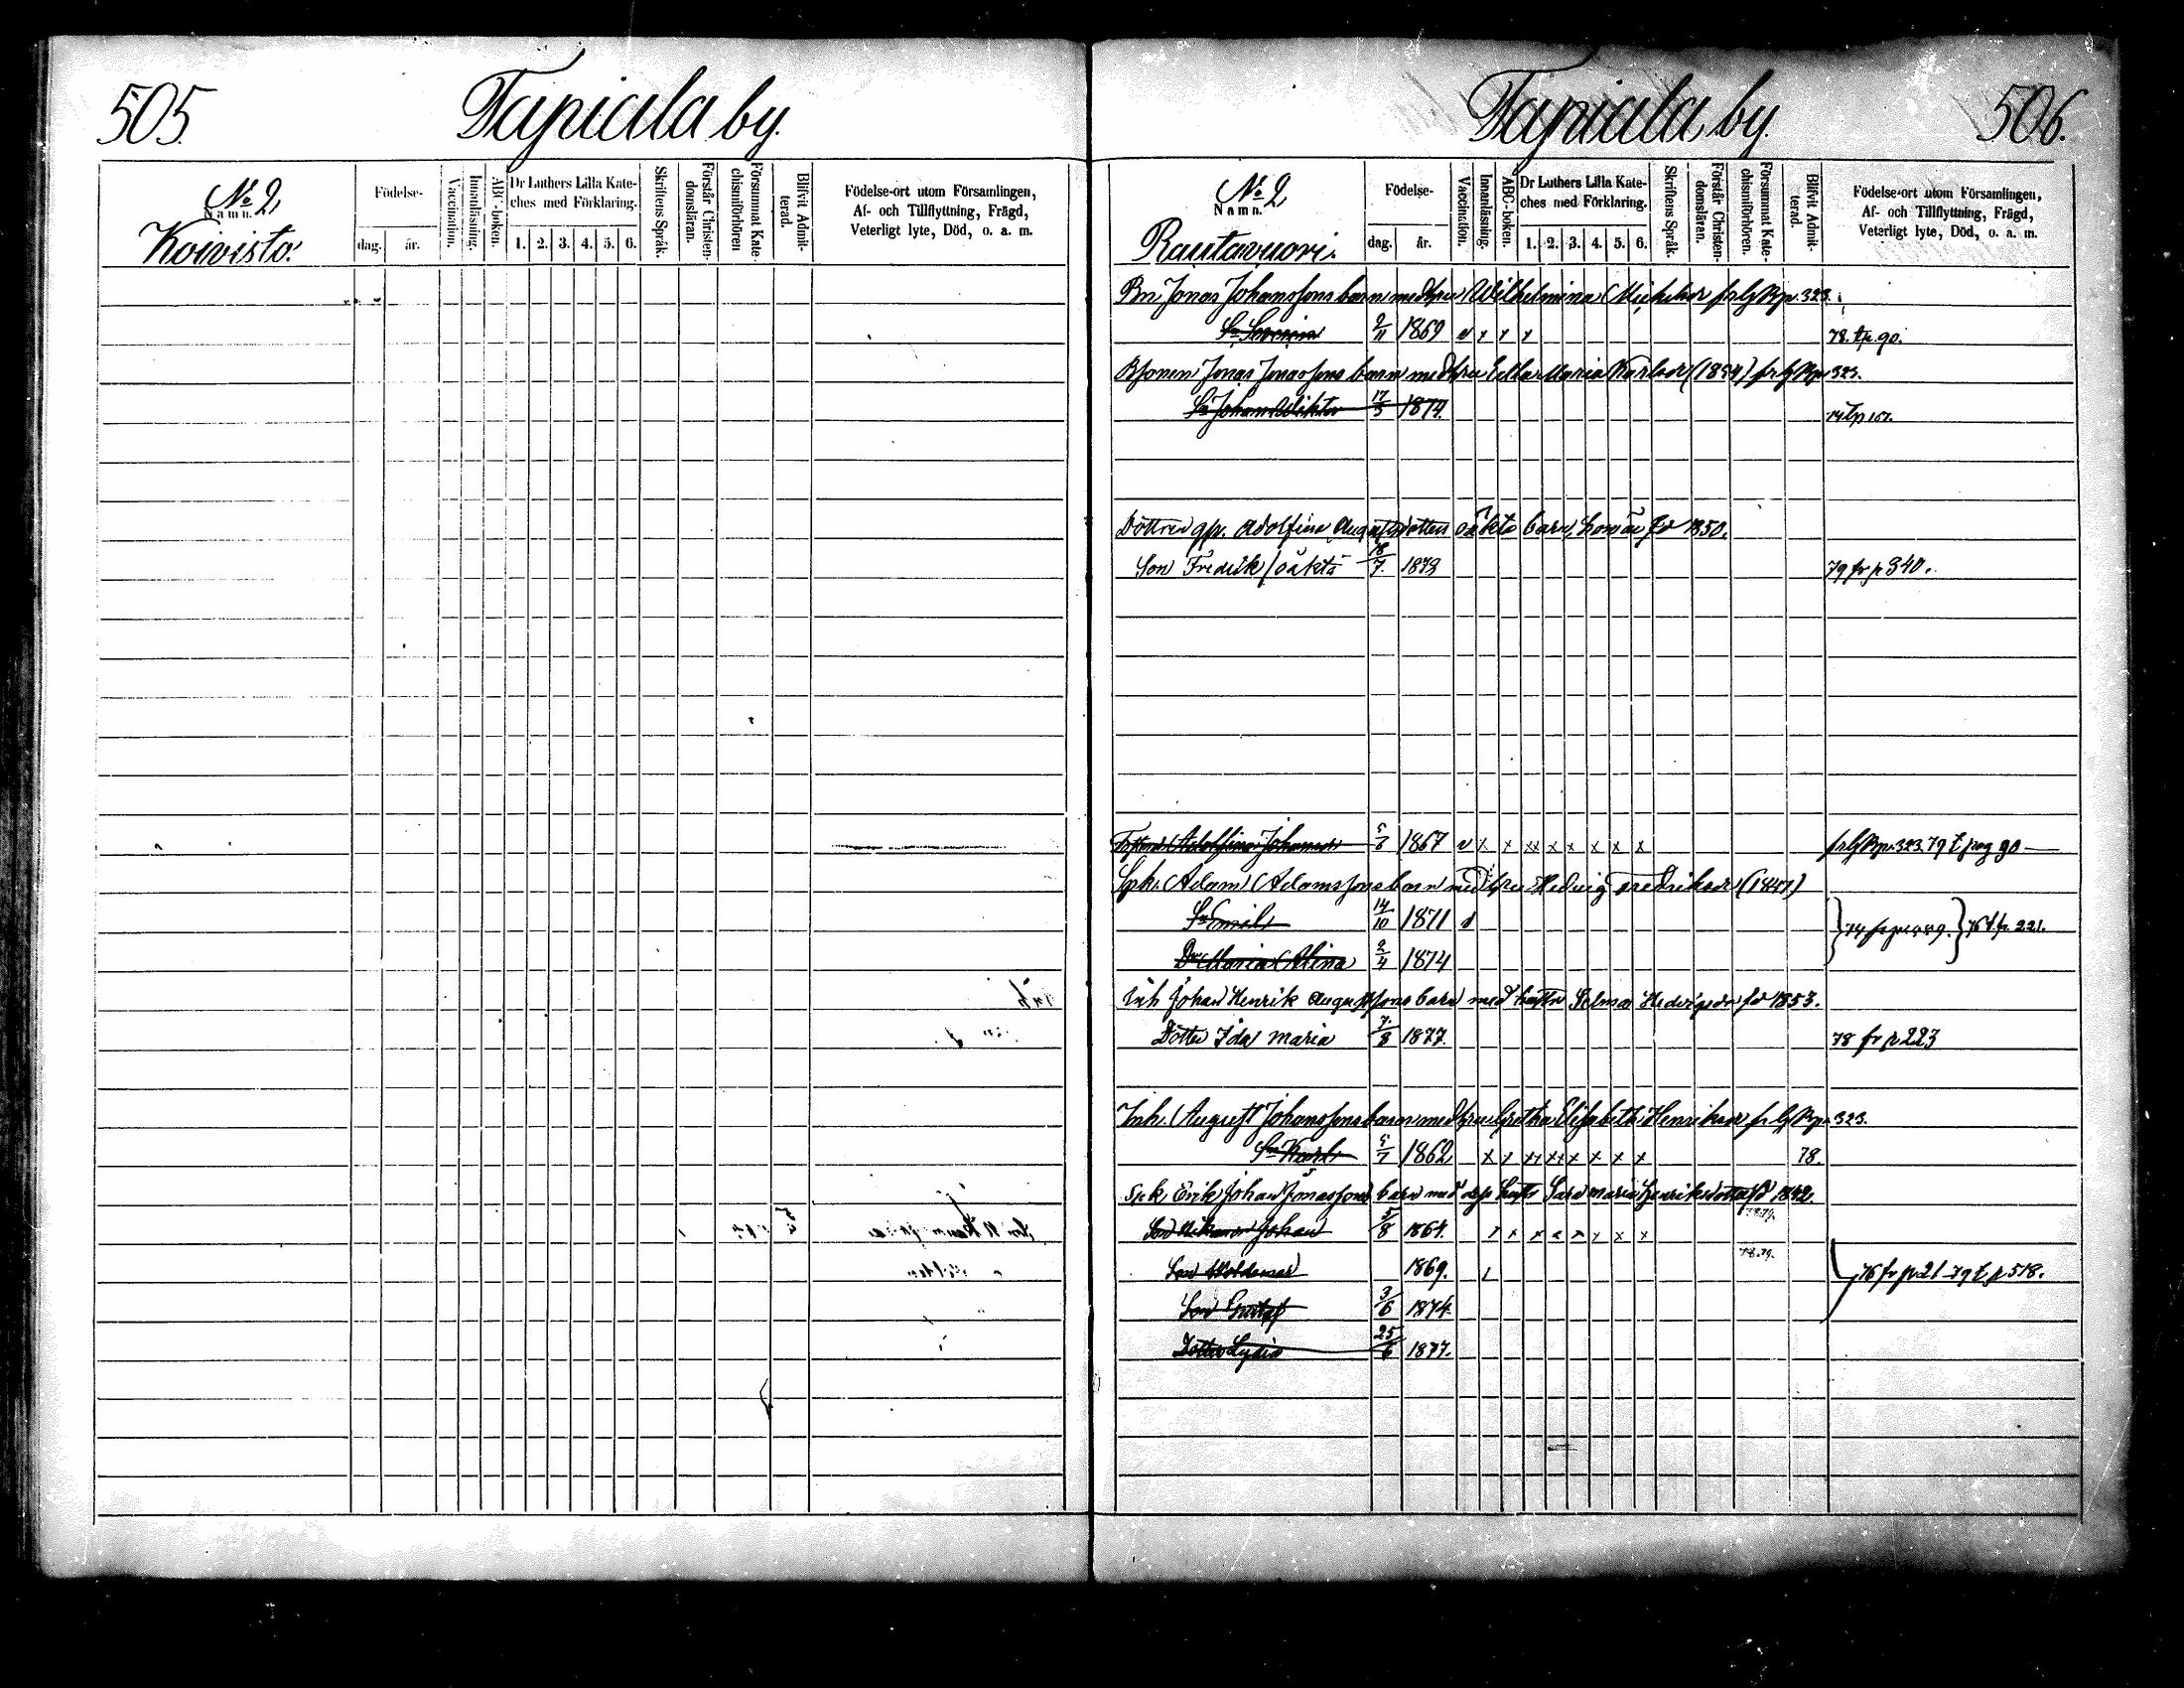 505. Tapiala by.
No 2, Namn. Koivisto.
Födelse- dag. år.
Vaccination. Innanläsning. ABC-boken.
Dr Luthers Lilla Kate-
ches med Förklaring.
1. 2. 3. 4. 5. 6.
Skriftens Språk.
Förstår Christen-
domsläran.
Försummat Kate-
chismiförhören
Blifvit Admit-
terad.
Födelse-ort utom Församlingen,
Af- och Tillflyttning, Frägd,
Veterligt lyte, Död, o. a. m.
Tapiala by. 506.
No 2 Namn. Rautavuori.
Födelse- dag. år.
Vaccination. Innanläsning. ABC-boken.
Dr Luthers Lilla Kate-
ches med Förklaring.
1. 2. 3. 4. 5. 6.
Skriftens Språk.
Förstår Christen-
domsläran.
Försummat Kate-
chismiförhören
Blifvit Admit-
terad.
Födelse-ort utom Församlingen,
Af- och Tillflyttning, Frägd,
Veterligt lyte, Död, o. a. m.
Jonas Johanssons barn med hru Wilhelmina Michelsdr 323.
2/11 1869 v x x x 78. tp. 90.
Jonas Jonassons barn med hru Maria Karlsdr (1854) 323.
Sn Johan Wiktor 17/3 1874.
Dottren Adolfina Augustsdotters oäkta barn, hon är fd 1850.
Son Fredrik / oäkta 18/7. 1879 79 fr p 340.
Adolfina Johansdr 5/6 1867 v x x xx x x x x x 323. 79 t pag 90
Adam Adamssons barn med hru Hedvig Fredriksdr (1847)
Sn Emil 14/10 1871 v 76 t. p. 221.
Dr Maria Alina 2/4 1874
Inh Johan Henrik Augustssons barn med hustru Selma Hedvigsdr fd 1853.
Dotter Ida Maria 7./8 1877. 78 fr p 223
Inh. August Johanssons barn med hru Gretha Elisabeth Henriksdr 323.
Sn Karl 5/7 1862 x x xx xx x x x x 78.
Erik Johan Jonassons barn med dess hustr Sara Maria Henriksdotter fd 1842.
Son Nikanor Johan 5/8 1864.
Son Woldemar 1869. 76 fr p 21 79 t p 518.
Son Gustaf 3/6 1874.
Dotter Lydia 25/6 1877.